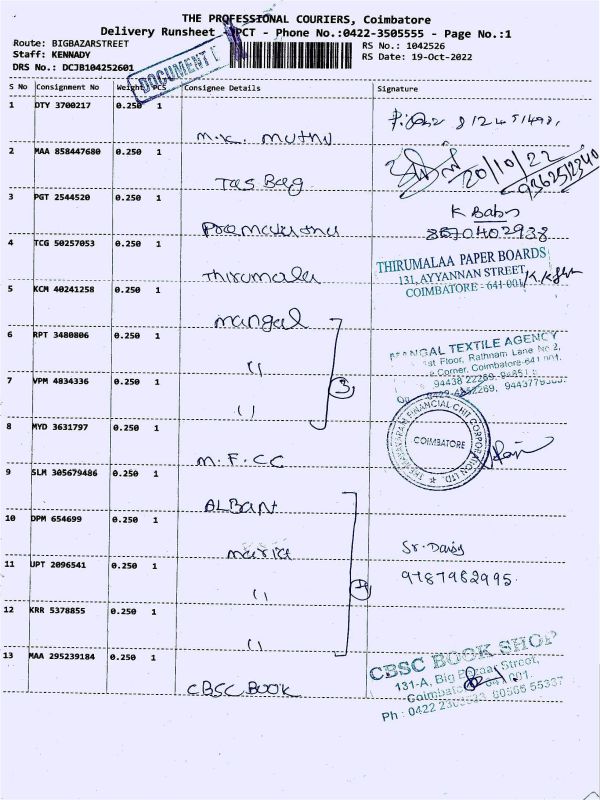 THE PROFESSIONAL COURIERS, Coimbatore
Delivery Runsheet - PCT - Phone No.:0422-3505555 - Page No.:1
Route: BIGBAZARSTREET
RS No.: 1042526
Staff: KENNADY
RS Date: 19-Oct-2022
DRS No.: DCJB104252601
DOCUMENT
S No Consignment No Weight PCS Consignee Details Signature
1 DTY 3700217 0.250 1
M.K. Muthu
2 MAA 858447680 0.250 1
Tas Bag
20/10/22
9362512340
3 PGT 2544520 0.250 1
K Babu
8670402938
4 TCG 50257053 0.250 1
Thirumala
THIRUMALAA PAPER BOARDS
131, AYYANNAN STREET,
COIMBATORE - 641 001
5 KCM 40241258 0.250 1
mangal
6 RPT 3480806 0.250 1
"
MANGAL TEXTILE AGENCY
1st Floor, Rathnam Lane No 2,
Corner, Coimbatore-641 001.
94438 22269
7 VPM 4834336 0.250 1
"
3
8 MYD 3631797 0.250 1
M.F.CC
FINANCIAL CHIT CORPORATION LTD.
COIMBATORE
9 SLM 305679486 0.250 1
ALBANT
10 DPM 654699 0.250 1
maria
Sr. Daisy
9787982995.
11 UPT 2096541 0.250 1
"
12 KRR 5378855 0.250 1
"
13 MAA 295239184 0.250 1
CBSC BOOK
CBSC BOOK SHOP
131-A, Big Bazaar Street,
Coimbatore 641 001.
Ph : 0422